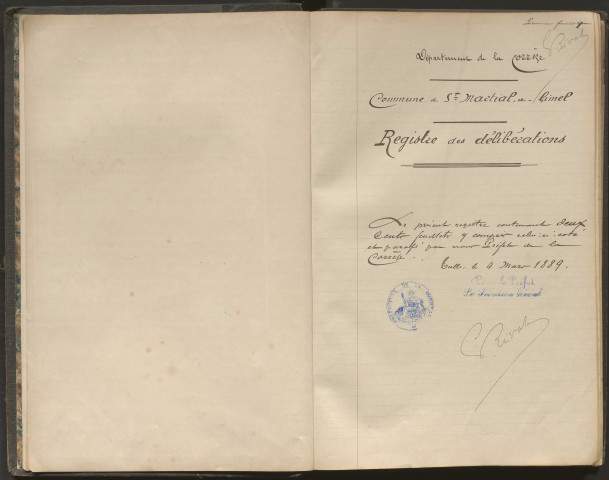 Département de la Corrèze
Commune de St Martial-de-Gimel
Registre des délibérations
Le présent registre contenant deux
cents feuillets y compris celui-ci coté
et paraphé par nous Préfet de la
Corrèze.
Tulle, le 4 Mars 1889.
Pour le Préfet
Le Secrétaire Général